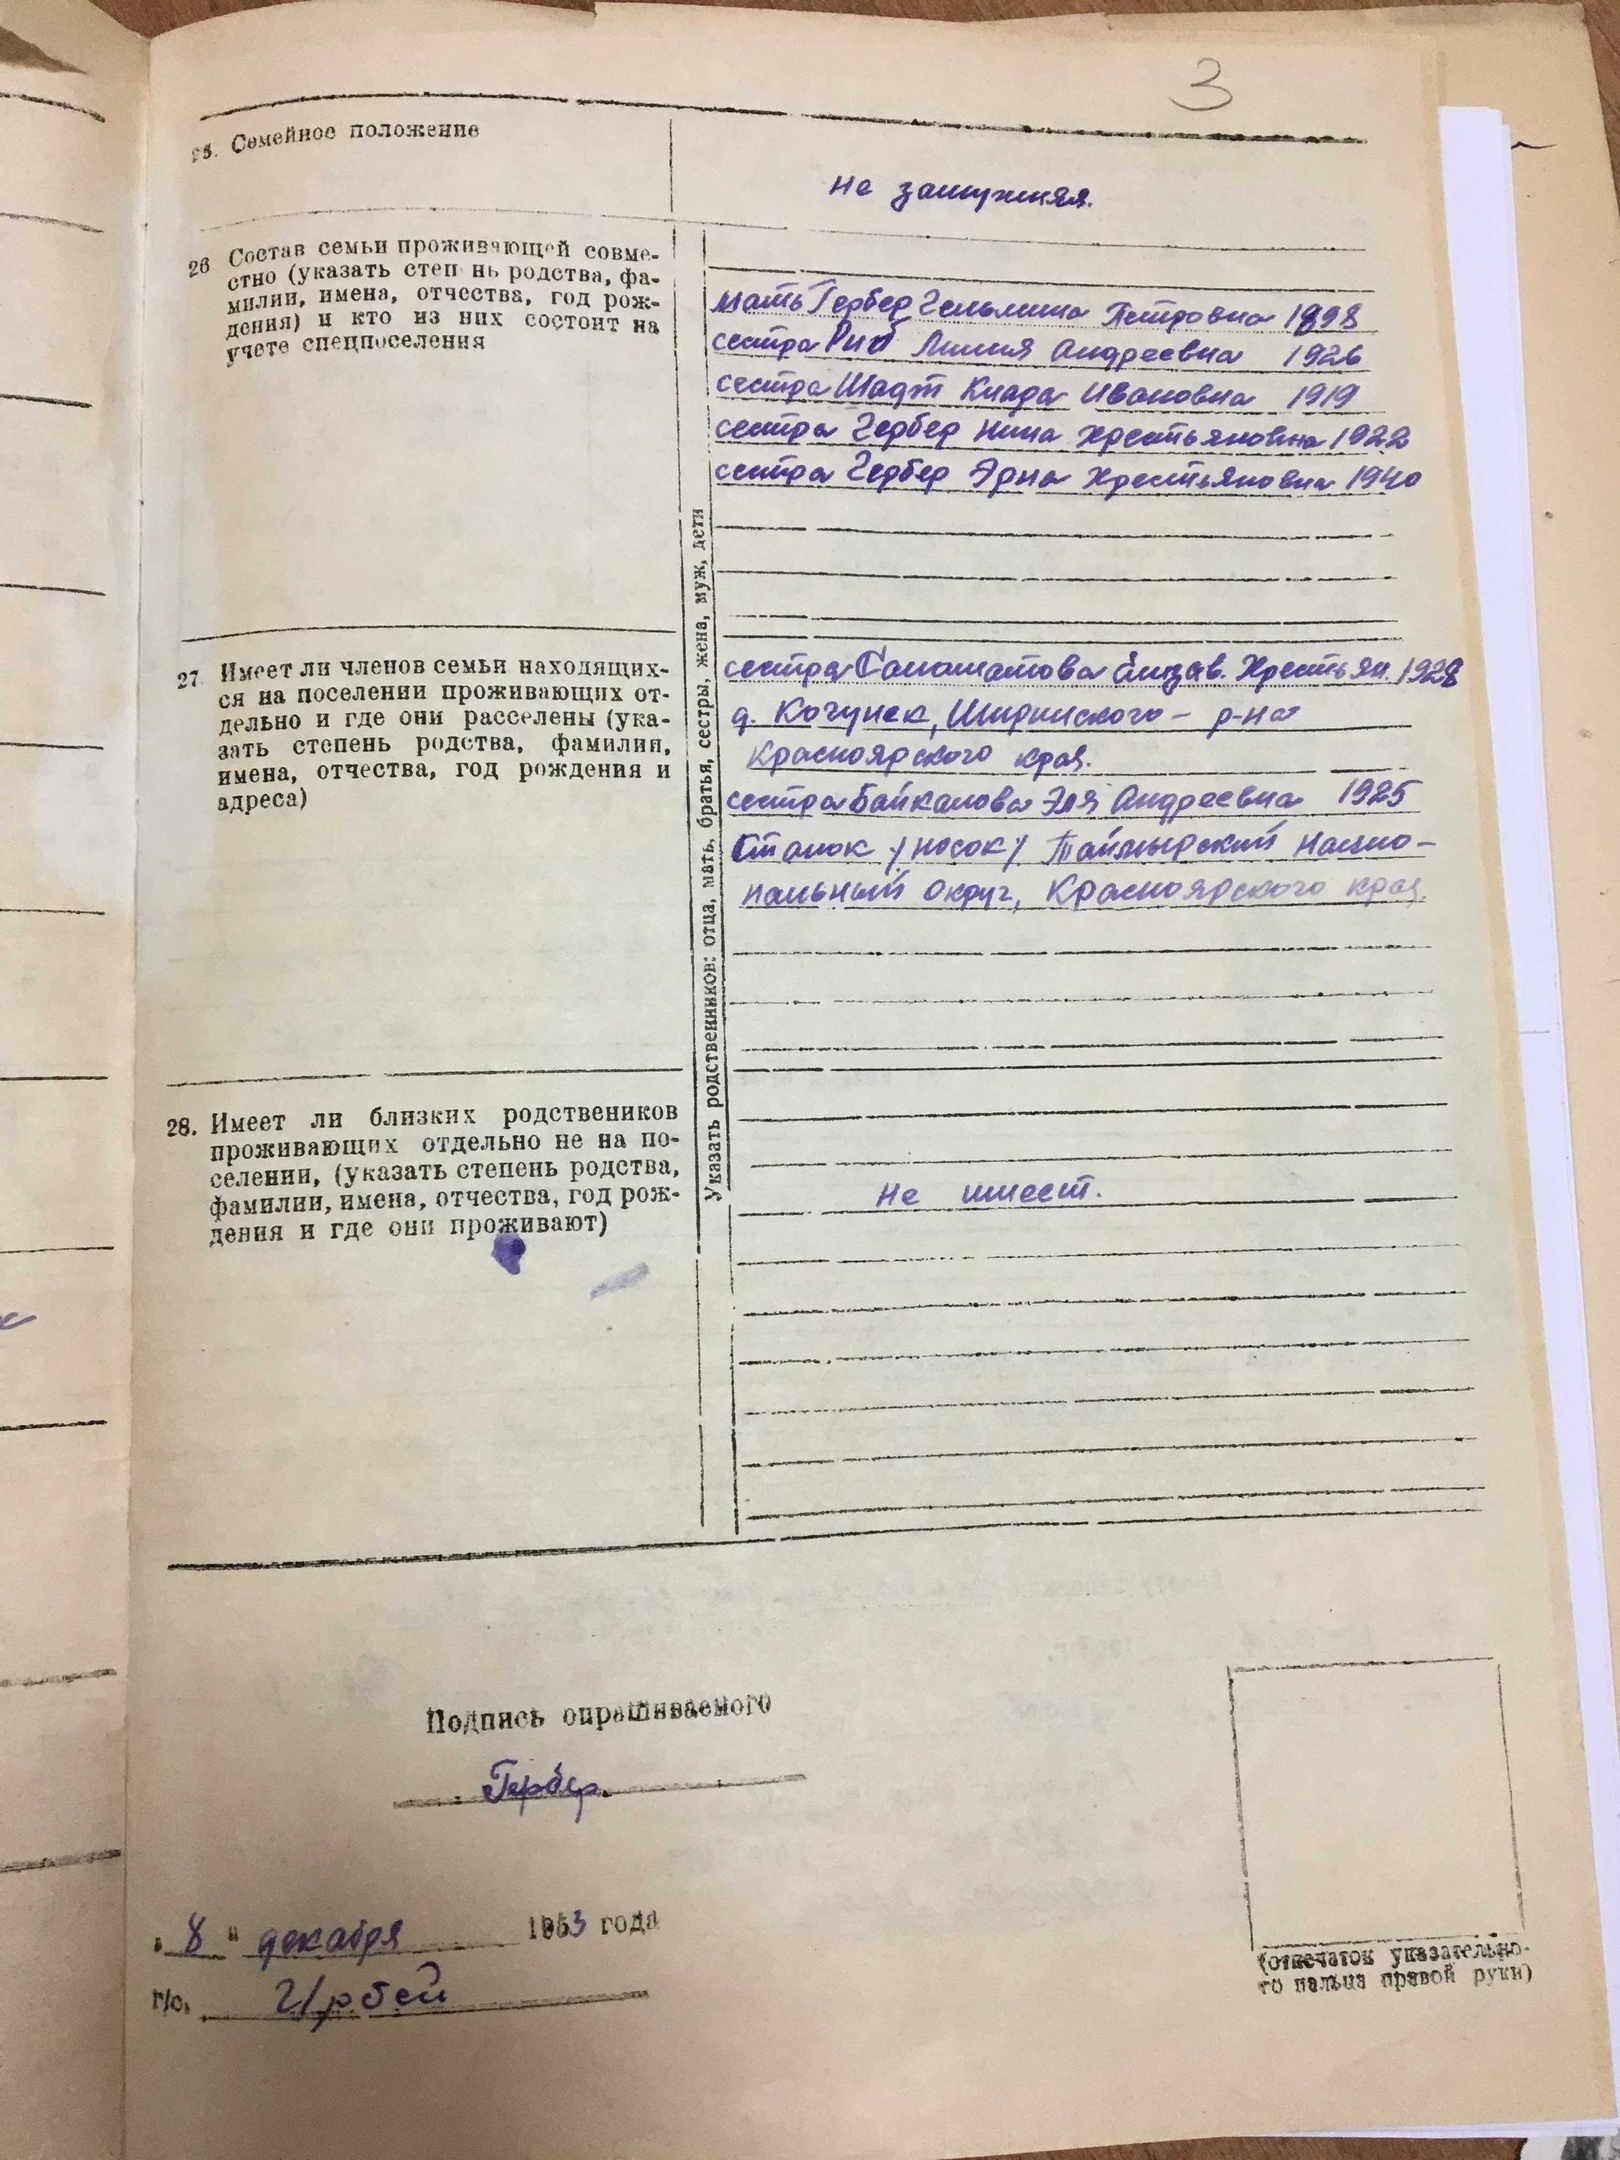 3
25. Семейное положение
не замужняя.
26 Состав семьи проживающей совме-
стно (указать степ нь родства, фа-
милии, имена, отчества, год рож-
дения) и кто из них состоит на
учете спецпоселения
мать Гербер Гельмина Петровна 1898
сестра Риб Лилия Андреевна 1926
сестра Шадт Клара Ивановна 1919
сестра Гербер Нина Хрестьяновна 1922
сестра Гербер Эрна Хрестьяновна 1940
Указать родственников: отца, мать, братья, сестры, жена, муж, дети
27 Имеет ли членов семьи находящих-
ся на поселении проживающих от-
дельно и где они расселены (ука-
зать степень родства, фамилии,
имена, отчества, год рождения и
адреса)
сестра Саломатова Елизав. Хрестьян. 1928
д. Ширинского - р-на
Красноярского края.
сестра Байкалова Эля Андреевна 1925
Станок /носок/ Таймырский нацио-
нальный округ, Красноярского края.
28. Имеет ли близких родствеников
проживающих отдельно не на по-
селении, (указать степень родства,
фамилии, имена, отчества, год рож-
дения и где они проживают)
Не имеет.
Подпись опрашиваемого
Гербер.
„ 8 " декабря 1953 года
г/о. Ирбей
(отпечаток указательно-
го пальца правой руки)